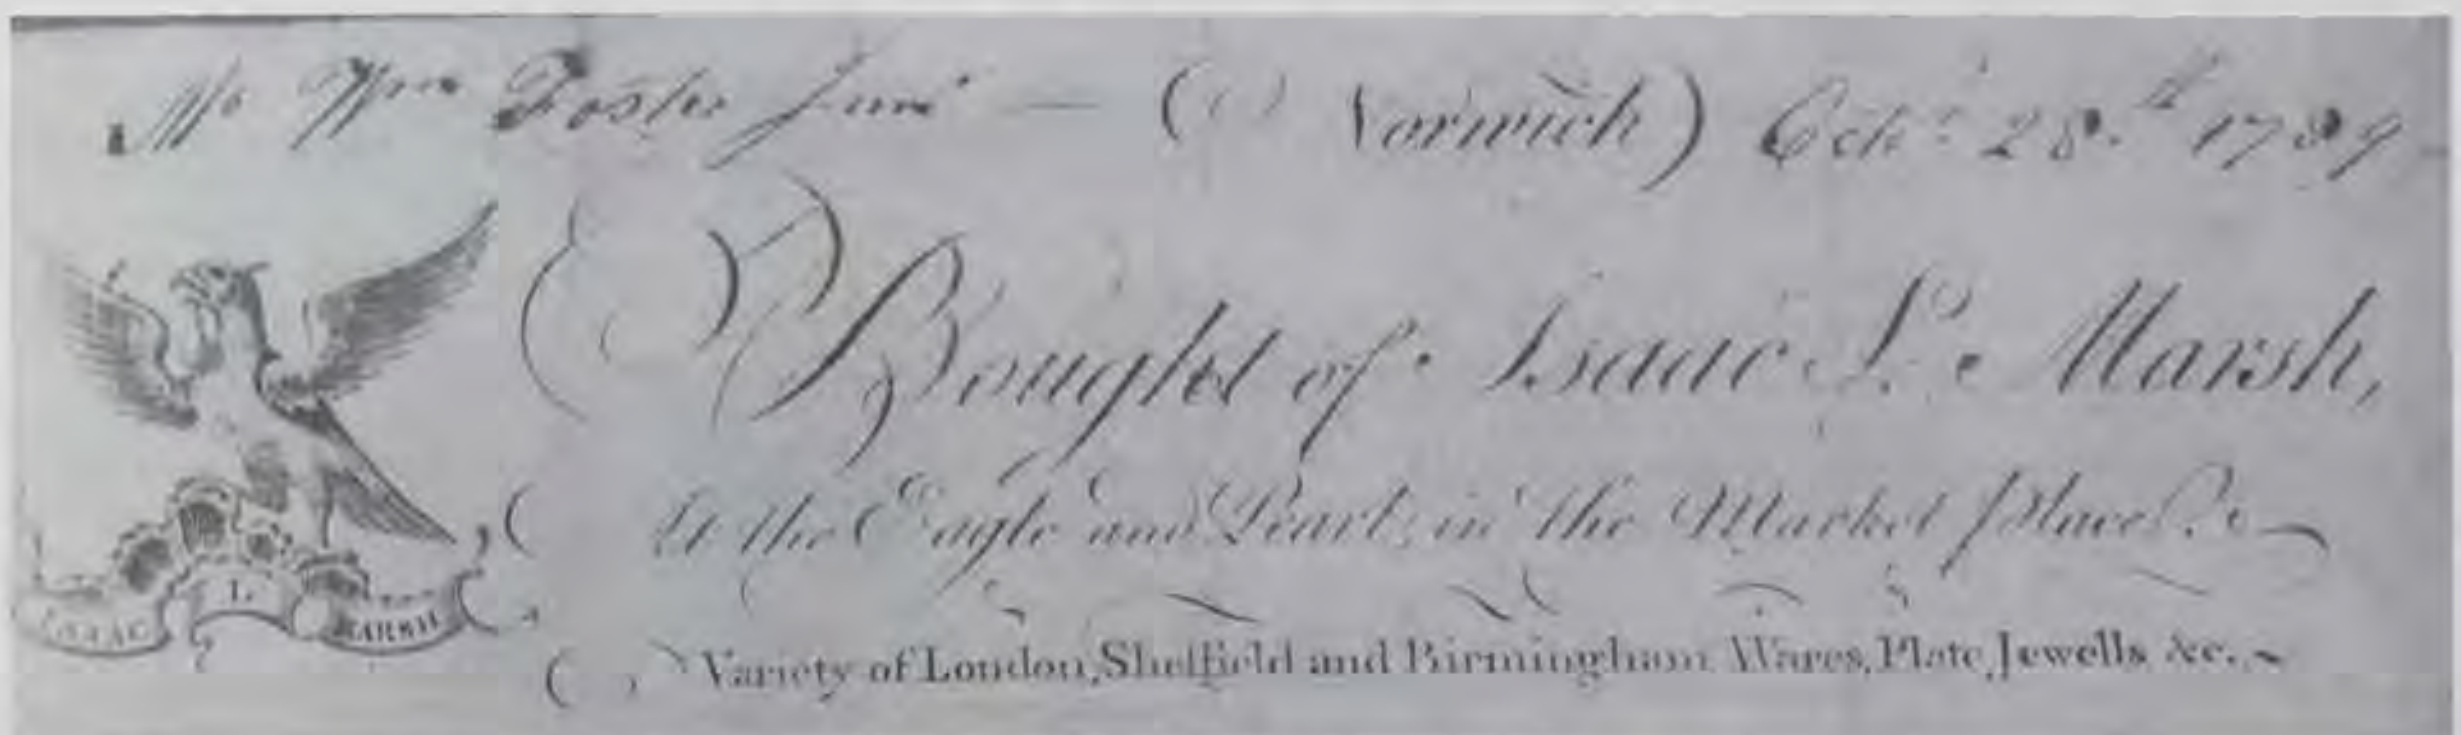 Mr. Wm Foster Junr — (Norwich) Octr. 28th 1789
Bought of Isaac L. Marsh,
At the Eagle and Pearl, in the Market place.
Variety of London, Sheffield and Birmingham Wares, Plate, Jewells &c.
ISAAC L. MARSH